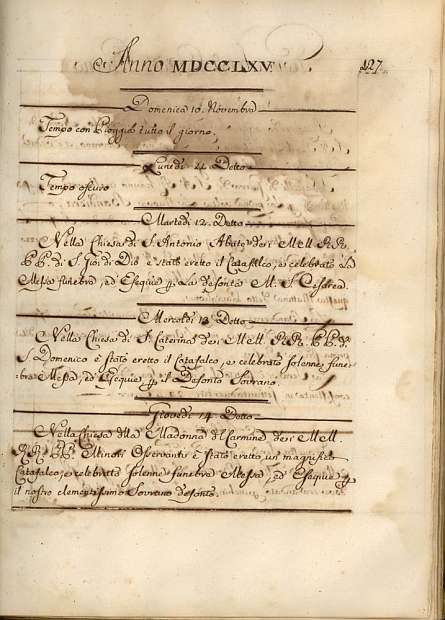 Anno MDCCLXV.
127.
Domenica 10. Novembre
Tempo con Pioggia tutto il giorno.
Lunedi 11. Detto
Tempo oscuro
Martedi 12. Detto
Nella Chiesa di S. Antonio Abate de i M. ti R. R.
P. P. di S. Gio: di Dio è stato eretto il Catafalco, e celebrato La
Messa funebre, ed Esequie p. La defonta M. S. Cesarea.
Mercoldi 13. Detto
Nella Chiesa di S. Caterina de i M. ti R. R. P. P.
S. Domenico è stato eretto il Catafalco, e celebrato Solenne fune-
bre Messa, ed Esequie p. il Defonto Sovrano.
Giovedi 14. Detto
Nella Chiesa della Madonna del Carmine de i M. ti
R. R. P. P. Minori Osservanti è stato eretto un magnifico
Catafalco, e celebrata Solenne funebre Messa, ed Esequie p.
il nostro clementissimo Sovrano defonto.